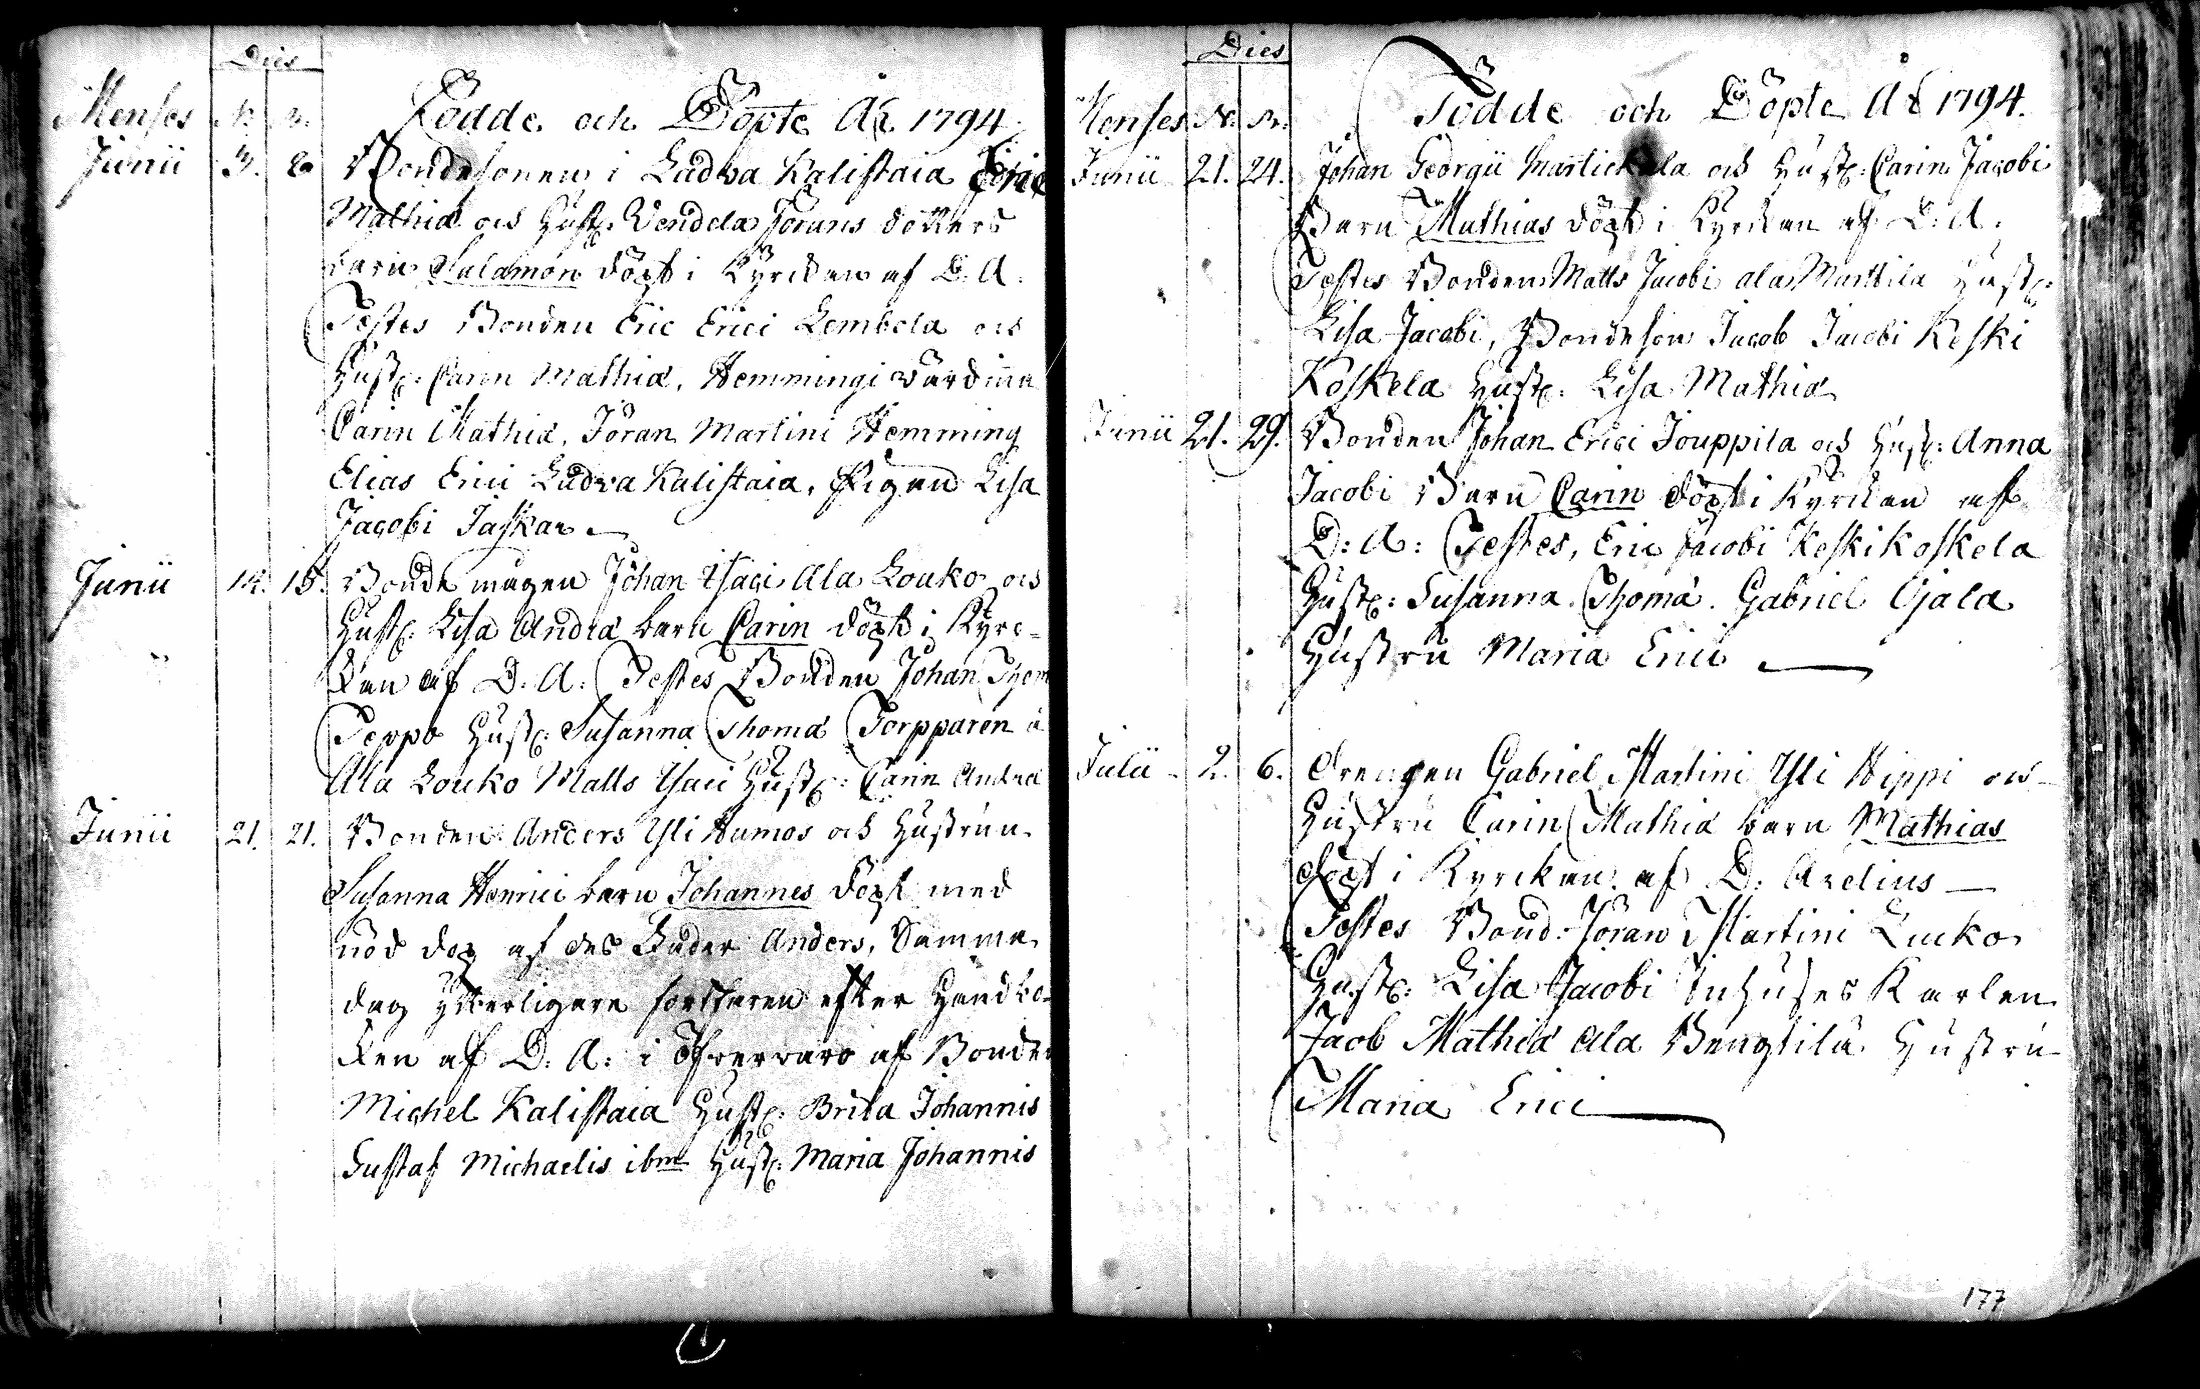 Dies
Menses N. R.
Födde och Döpte År 1794.
Junii 3. 8 Bondesonen i Ladva Kalistaia Eric
Mathiæ och Hust: Vendela Jörans dotters
barn Salamon döpt i Kyrckan af D. A.
Testes Bonden Eric Erici Lembela och
Hust: Carin Mathiæ, Hemmingi värdinna
Carin Mathiæ, Jöran Martini Hemming
Elias Erici Ladva Kalistaia, Pigan Lisa
Jacobi Jaskar
Junii 14. 15. Bonde mågen Johan Isaci Ala Louko och
Hust: Lisa Andræ barn Carin döpt i Kyrc-
kan af D. A: Testes Bonden Johan Thom
Seppo Hust: Susanna Thomæ Torpparen å
Ala Louko Matts Isaci Hust: Carin Andreæ
Junii 21. 21. Bonden Anders Yli Humos och Hustrun
Susanna Henrici barn Johannes döpt med
nöd dop af des Fader Anders, Samma
dag ytterligare forkfaren efter Handbo-
ken af D. A: i Öfvervaro af Bonden
Michel Kalistaia Hust: Brita Johannis
Gustaf Michaelis ibm Hust: Maria Johannis
Dies
Menses N. R.
Födde och Döpte År 1794.
Junii 21. 24. Johan Georgii Martickala och Hust: Carin Jacobi
Barn Mathias döpt i Kyrckan af D. A.
Testes Bonden Matts Jacobi ala Marttila Hust:
Lisa Jacobi, Bondeson Jacob Jacobi Keski
Koskela Hust: Lisa Mathiæ
Junii 21. 29. Bonden Johan Erici Jouppila och Hust: Anna
Jacobi Barn Carin döpt i Kyrckan af
D: A: Testes, Eric Jacobi Keskikoskela
Hust: Susanna Thomæ. Gabriel Ojala
Hustru Maria Erici
Julii 2. 6. Drengen Gabriel Martini Yli Hippi och
Hustru Carin Mathiæ barn Mathias
döpt i Kyrckan af D: Arelius
Testes Bond: Jöran Martini Luko
Hust: Lisa Jacobi Inhuses Karlen
Jacob Mathiæ Ala Bengtila Hustru
Maria Erici
177